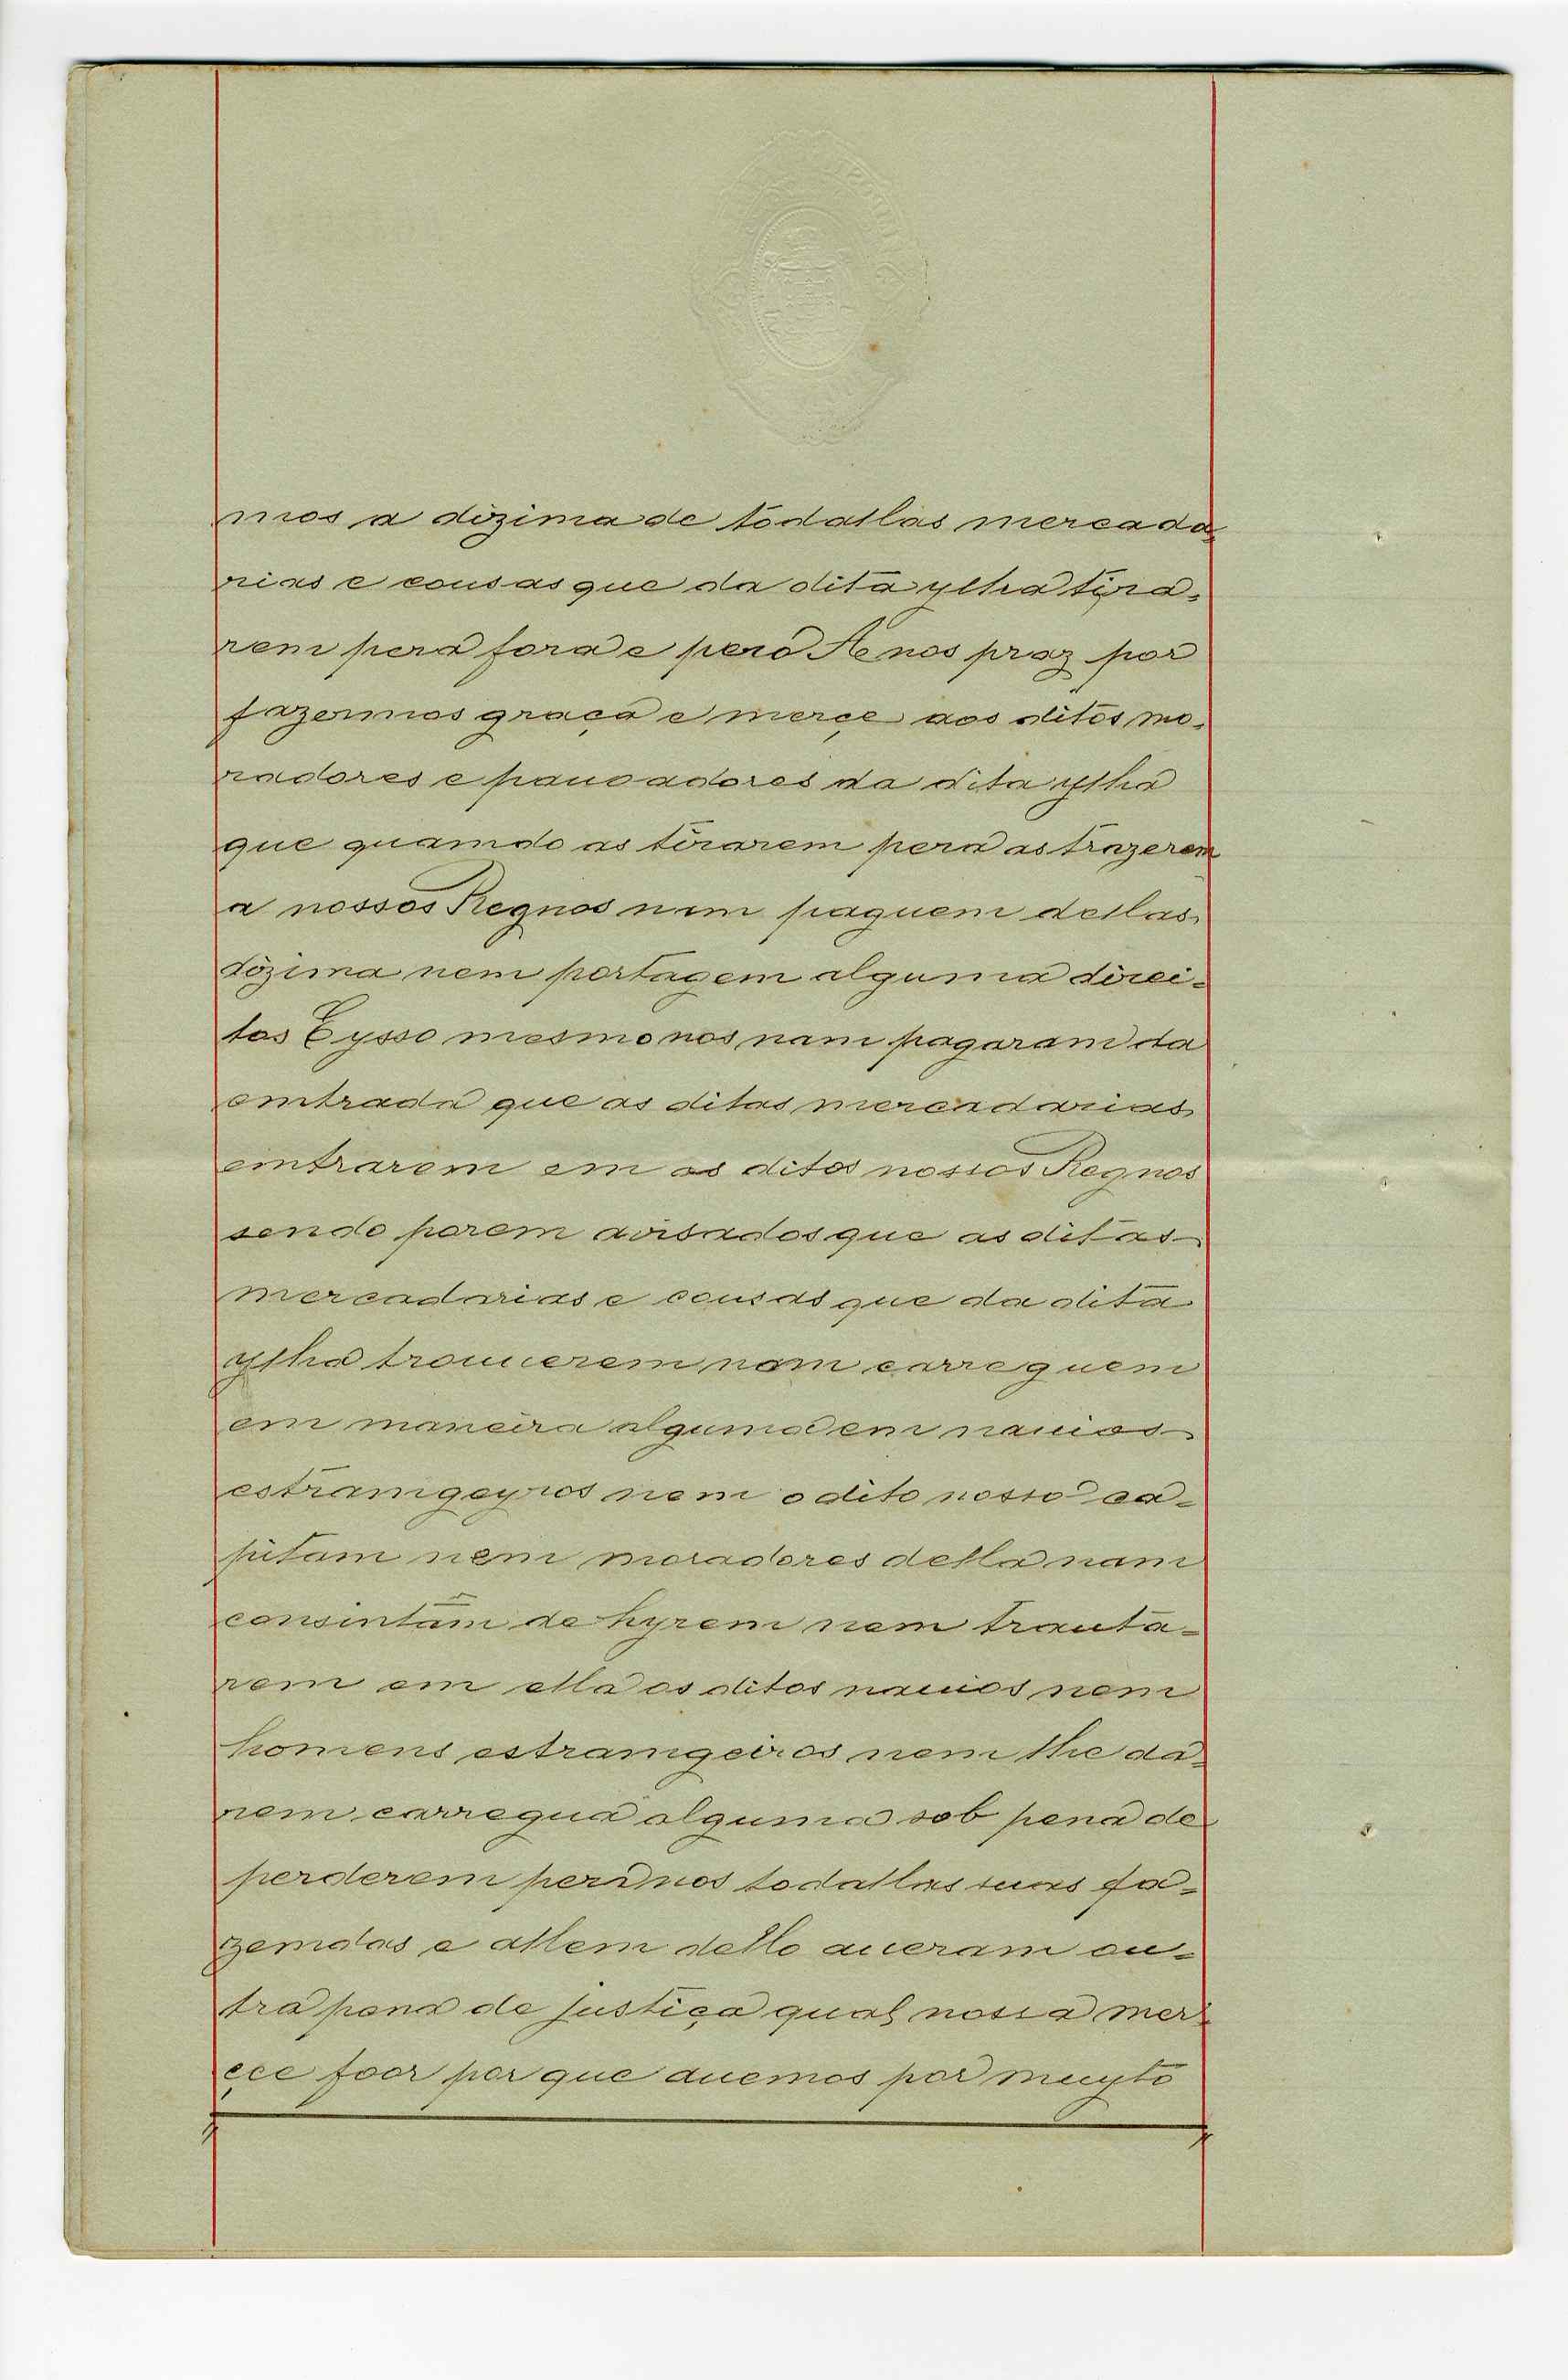 mos a dizima de todallas mercada-
rias e cousas que da dita ylha tira-
rem pera fora e pero Ae nos praz por
fazermos graça e merçe aos ditos mo-
radores e pauoadores da dita ylha
que quamdo as tirarem pera as trazerem
a nossos Regnos nam paguem dellas
dizima nem portagem alguma direi-
tos E ysso mesmo nos nam pagaram da
emtrada que as ditas mercadarias
emtrarem em os ditos nossos Regnos
sendo porem avisados que as ditas
mercadarias e cousas que da dita
ylha trouuerem nam carreguem
em maneira alguma em nauios
estramgeyros nem o dito nosso ca-
pitam nem moradores della nam
consintam de hyrem nem trauta-
rem em ella os ditos nauios nem
homens estramgeiros nem lhe da-
rem carregua alguma sob pena de
perderem pera nos todallas suas fa-
zemdas e allem dello aueram ou-
tra pena de justiça qual nossa mer-
çce foor por que auemos por muyto